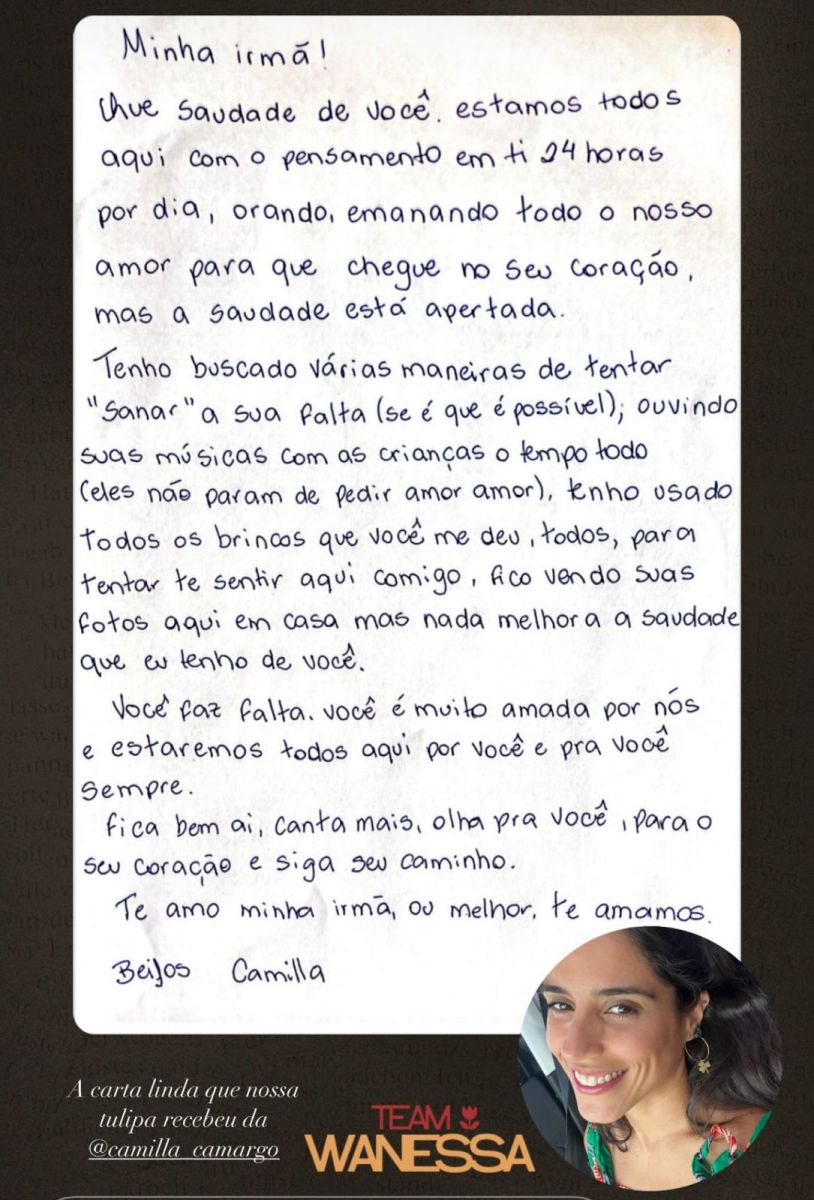 Minha irmã!
Que saudade de você. estamos todos
aqui com o pensamento em ti 24 horas
por dia, orando, emanando todo o nosso
amor para que chegue no seu coração,
mas a saudade está apertada.
Tenho buscado várias maneiras de tentar
"sanar" a sua falta (se é que é possível); ouvindo
suas músicas com as crianças o tempo todo
(eles não param de pedir amor amor), tenho usado
todos os brincos que você me deu, todos, para
tentar te sentir aqui comigo, fico vendo suas
fotos aqui em casa mas nada melhora a saudade
que eu tenho de você.
Você faz falta. você é muito amada por nós
e estaremos todos aqui por você e pra você
sempre.
fica bem ai, canta mais, olha pra você, para o
seu coração e siga seu caminho.
Te amo minha irmã, ou melhor, te amamos.
Beijos Camilla
A carta linda que nossa
tulipa recebeu da
@camilla_camargo
TEAM
WANESSA